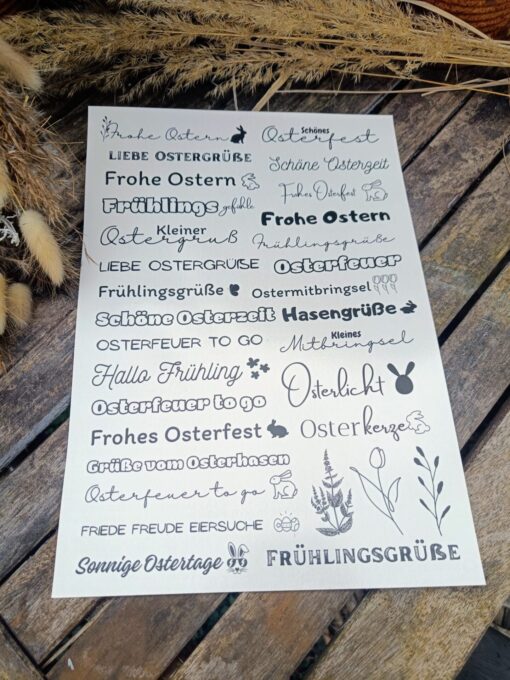 Frohe Ostern
Schönes Osterfest
LIEBE OSTERGRÜßE
Schöne Osterzeit
Frohe Ostern
Frohes Osterfest
Frühlingsgefühle
Frohe Ostern
Kleiner Ostergruß
Frühlingsgrüße
LIEBE OSTERGRÜßE
Osterfeuer
Frühlingsgrüße
Ostermitbringsel
Schöne Osterzeit
Hasengrüße
OSTERFEUER TO GO
Kleines Mitbringsel
Hallo Frühling
Osterlicht
Osterfeuer to go
Frohes Osterfest
Osterkerze
Grüße vom Osterhasen
Osterfeuer to go
FRIEDE FREUDE EIERSUCHE
Sonnige Ostertage
FRÜHLINGSGRÜßE